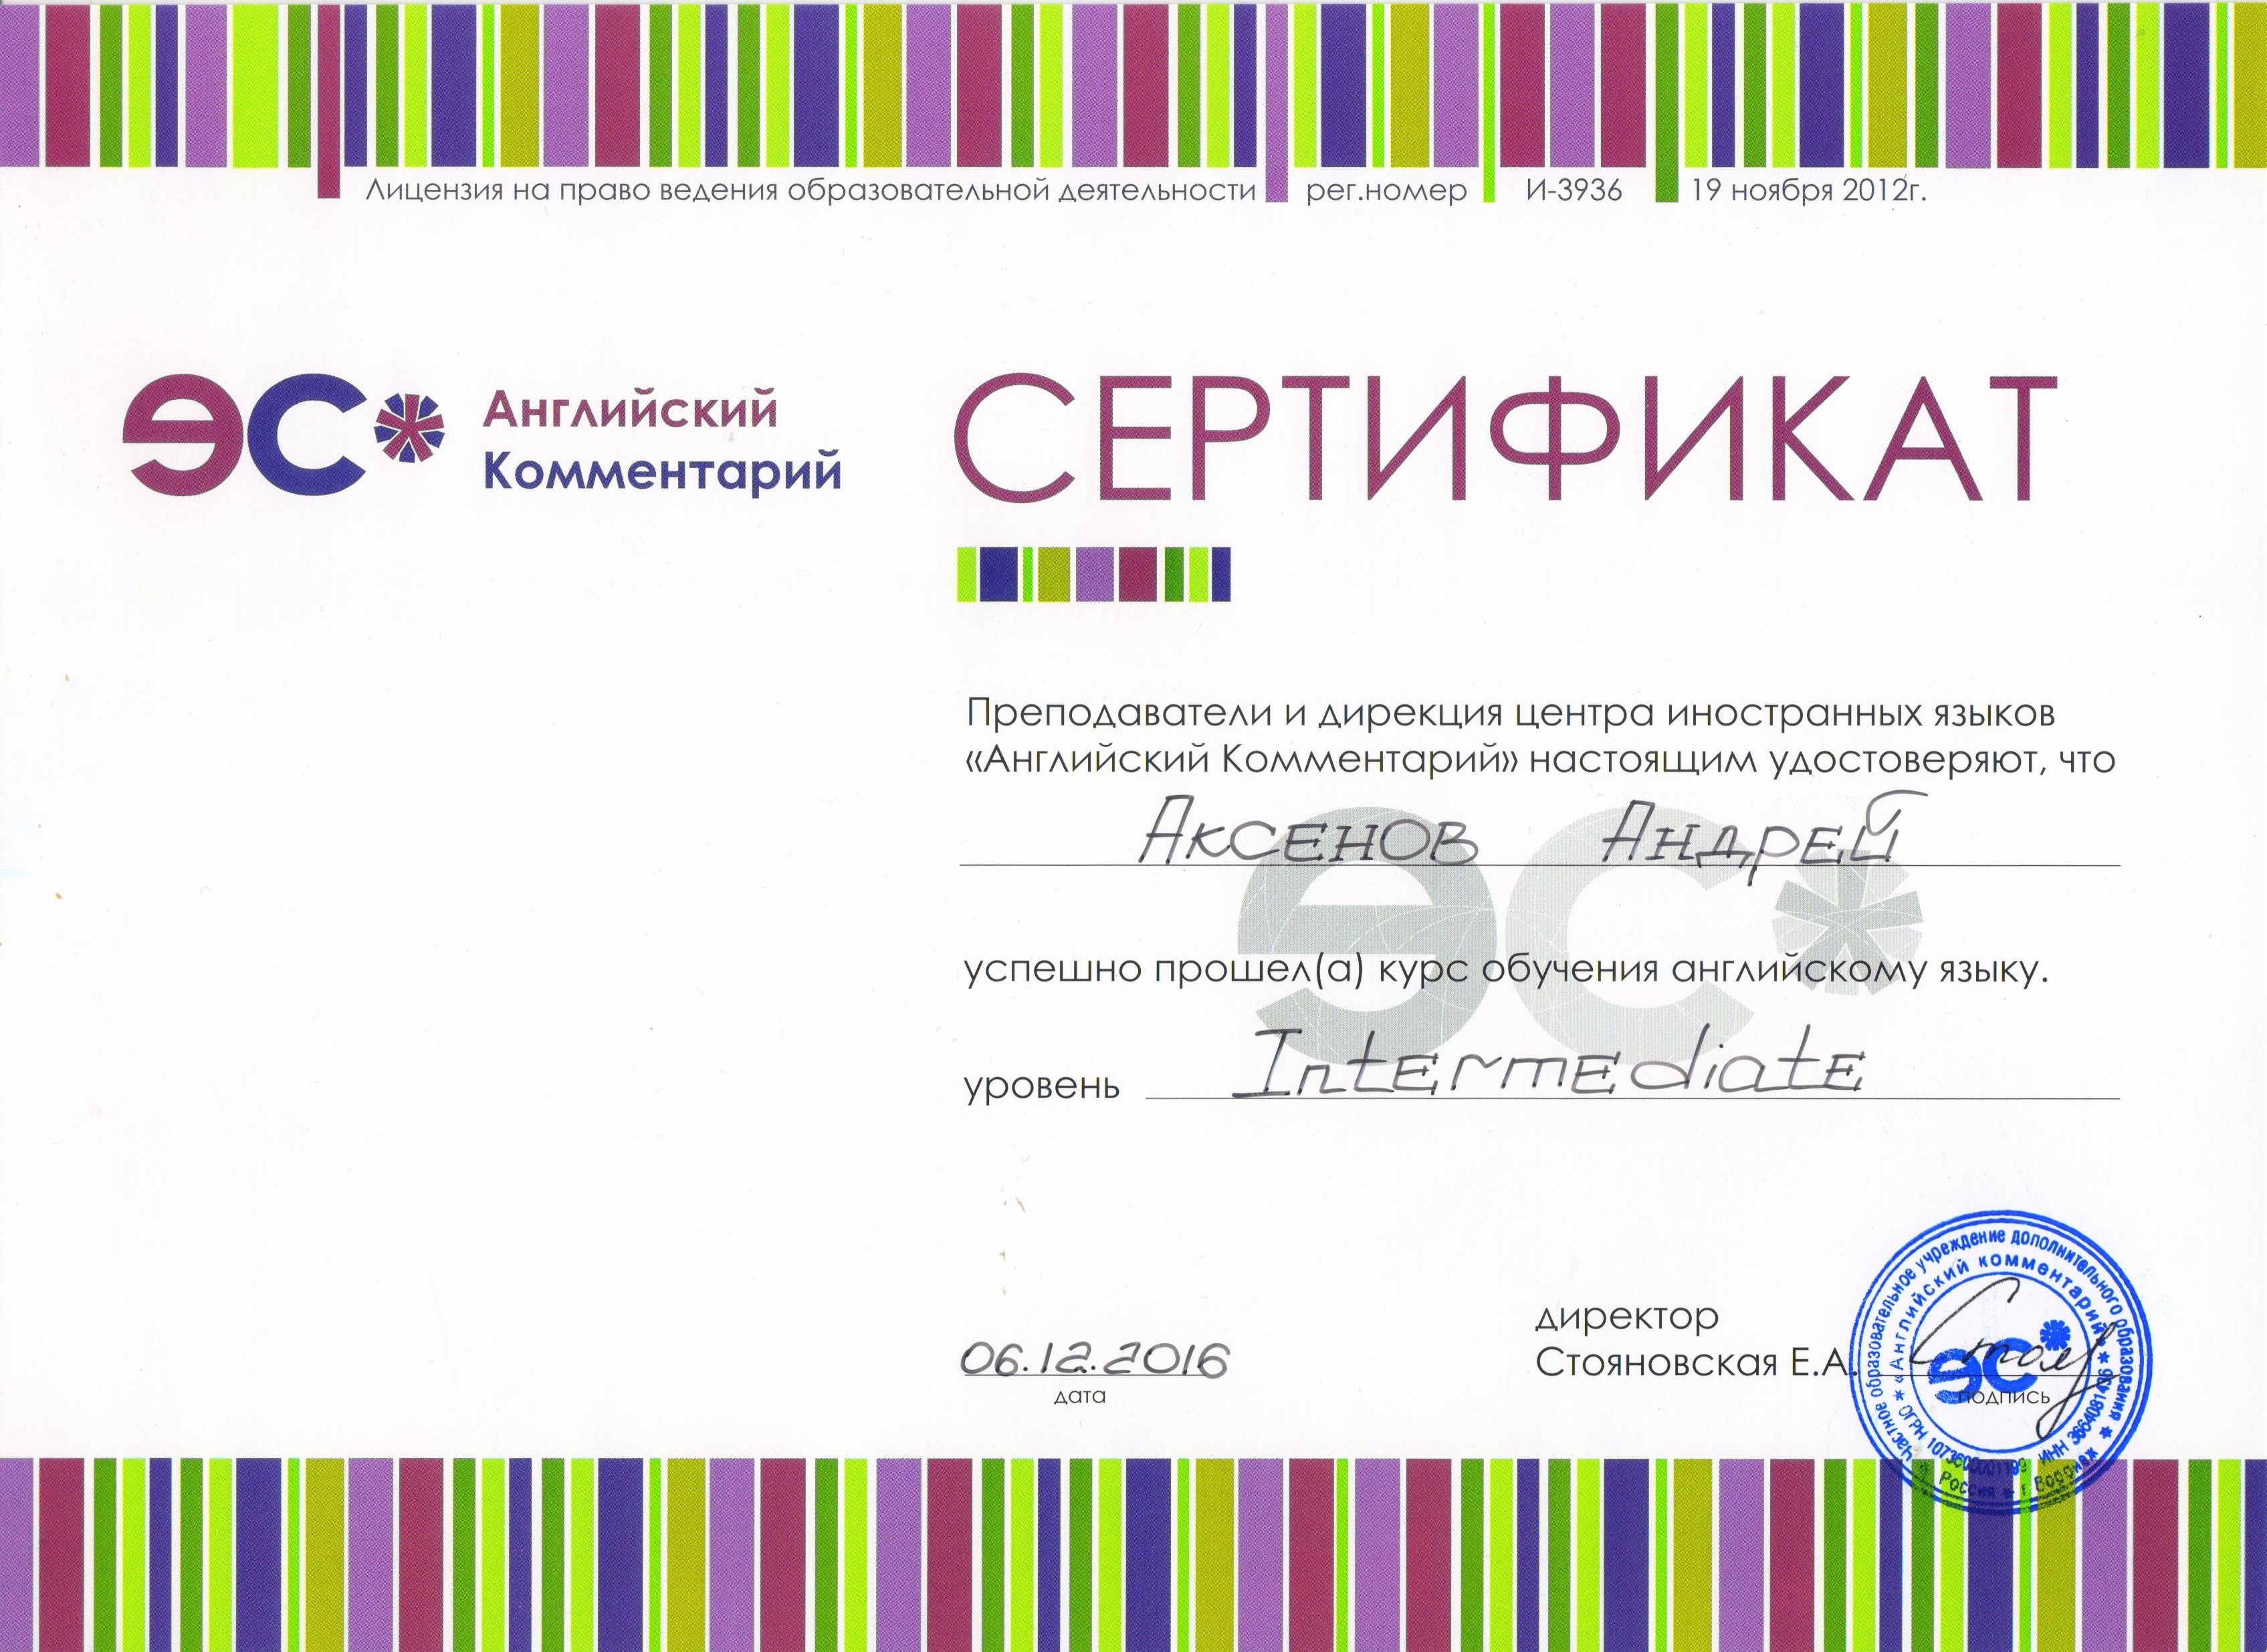 Лицензия на право ведения образовательной деятельности рег.номер И-3936 19 ноября 2012г.
эс* Английский
Комментарий
СЕРТИФИКАТ
Преподаватели и дирекция центра иностранных языков
«Английский Комментарий» настоящим удостоверяют, что
Аксенов Андрей
эс*
успешно прошел(а) курс обучения английскому языку.
уровень Intermediate
06.12.2016
дата
директор
Стояновская Е.А.
подпись
Частное образовательное учреждение дополнительного образования
* «Английский комментарий» *
* ОГРН 1073600001199 ИНН 3664081436 *
* Россия * г Воронеж *
эс*